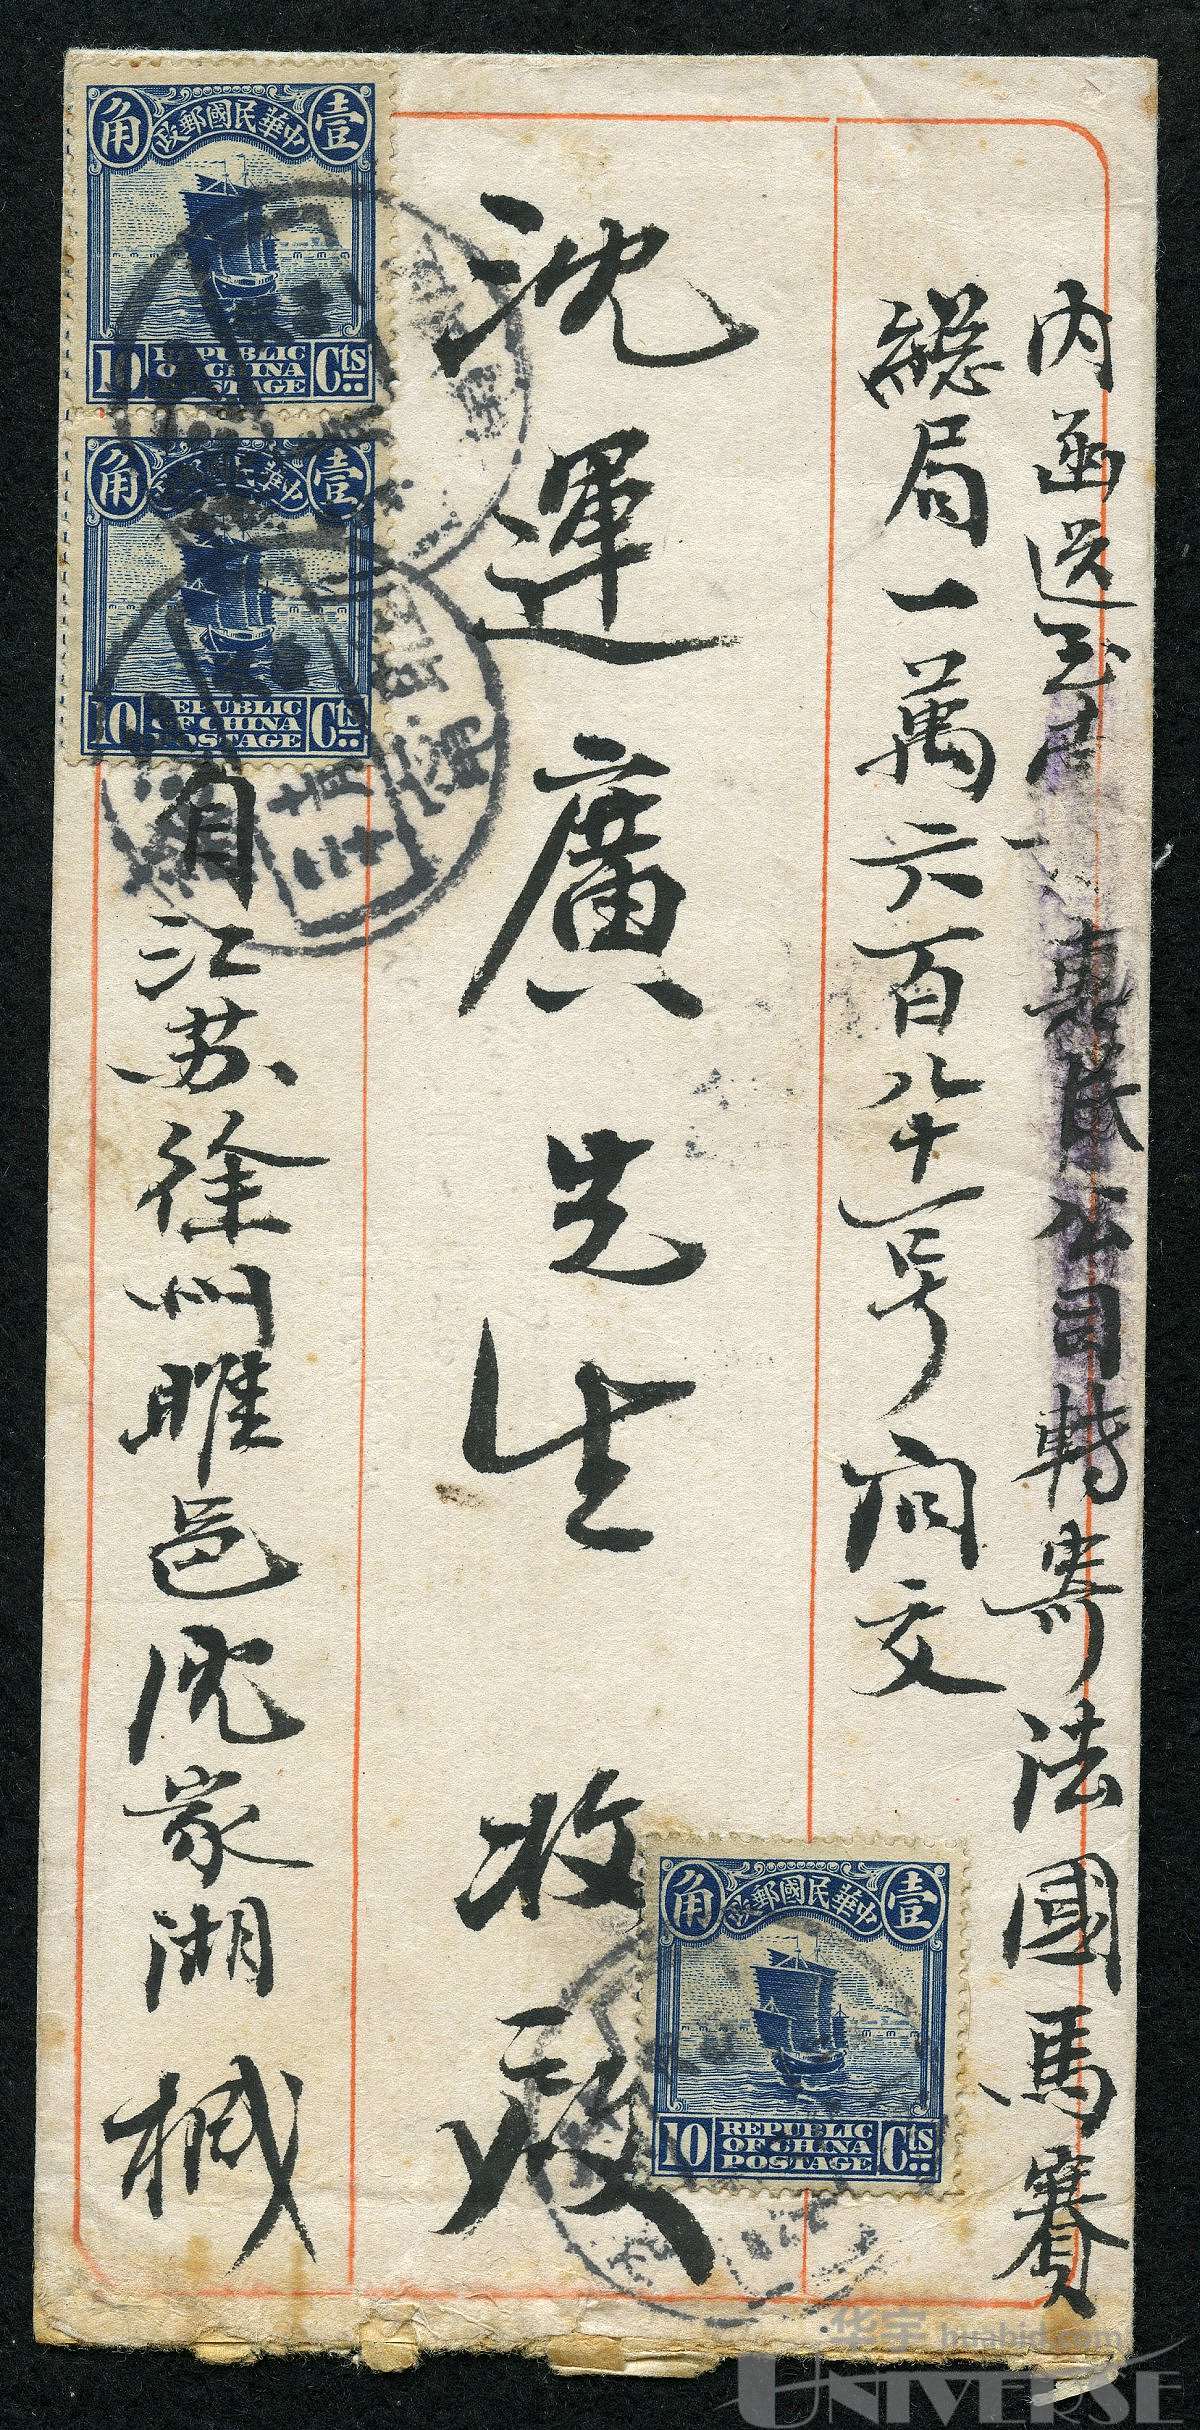 內函送至
惠民公司轉寄法國馬賽
總局一萬六百八十一号 交
沈運廣先生 收啟
自江苏徐州睢邑沈家湖槭
角 中華民國郵政 壹
10 REPUBLIC OF CHINA POSTAGE Cts
角 中華民國郵政 壹
10 REPUBLIC OF CHINA POSTAGE Cts
角 中華民國郵政 壹
10 REPUBLIC OF CHINA POSTAGE Cts
华宇 huabid.com
UNIVERSE